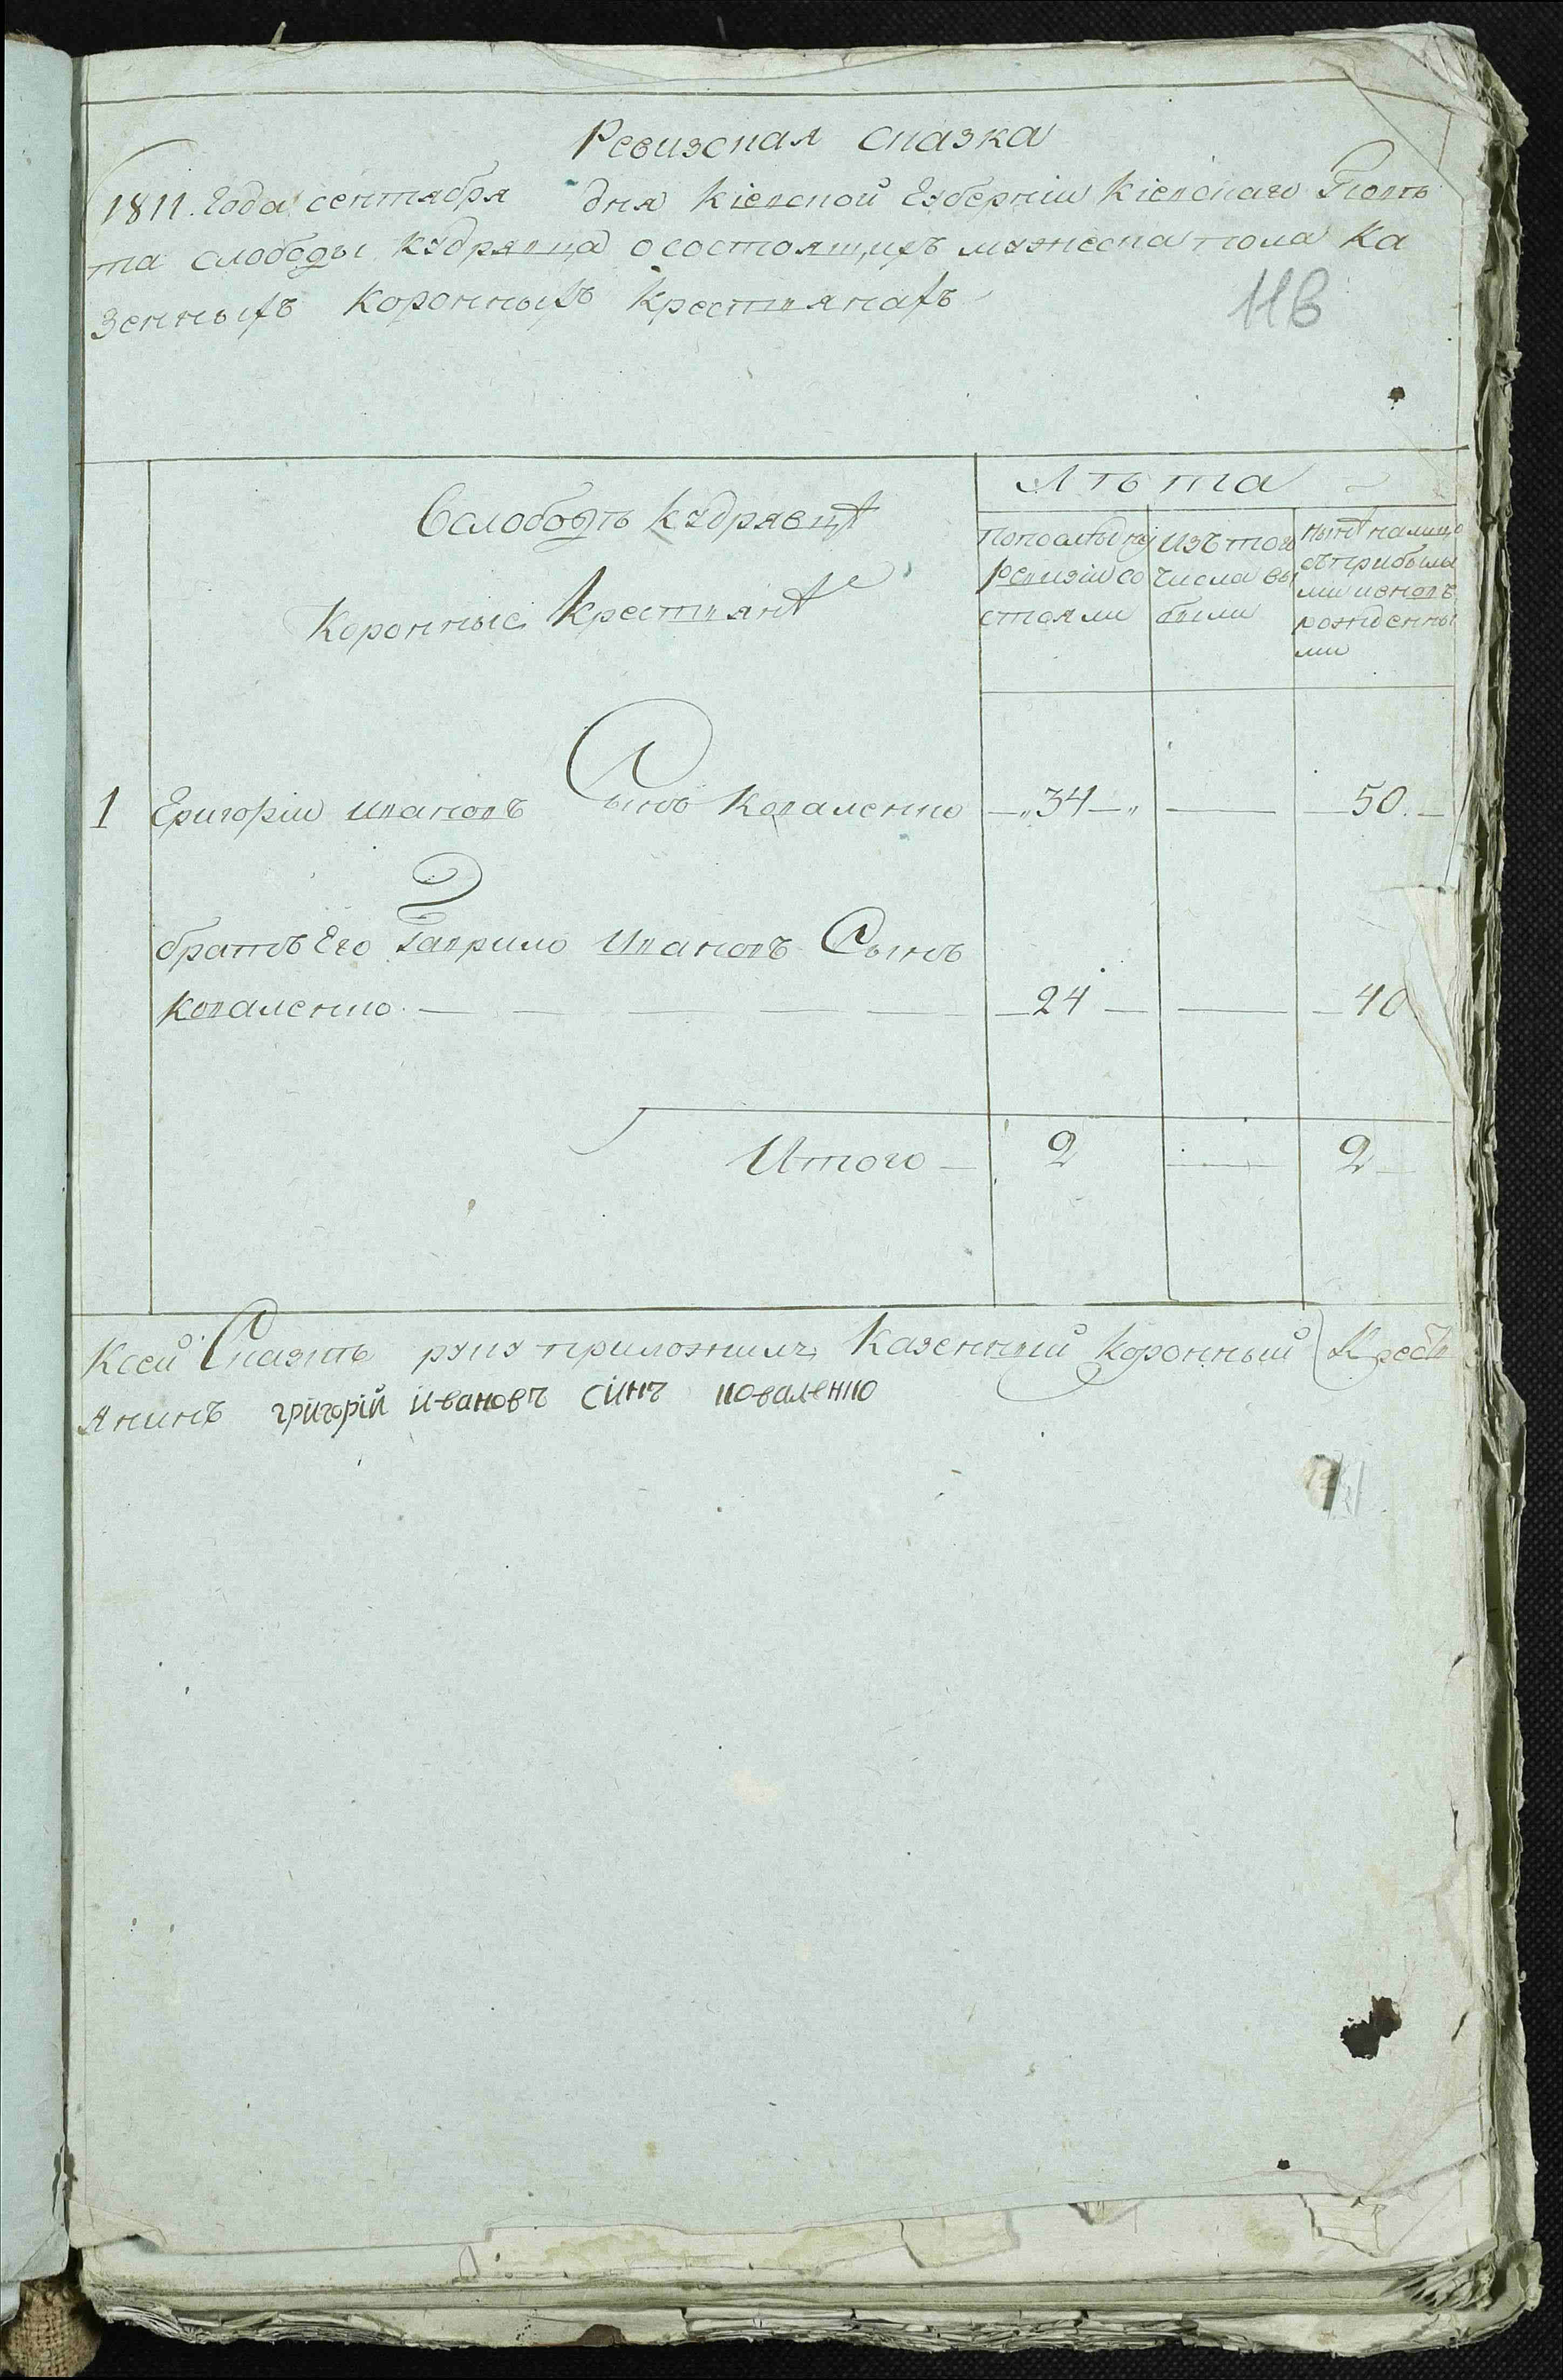 Ревизская сказка
1811. Года сентября дня Кіевской Губерніи Кіевскаго Повѣ
та слободы Кудрявца о состоящихъ мужеска пола Ка
зенныхъ Коронныхъ Крестьянахъ
116
Вслободѣ Кудрявцѣ
Коронные Крестьянѣ
Лѣта
попослѣдней ревизіи со стояли
Изъ того числа вы были
нынѣ налицо съприбылы ми ивновъ рожденны ми
1 Григорій Ивановъ Сынъ Коваленко 34 — 50.
братъ Его Гаврило Ивановъ Сынъ
Коваленко — 24 — 40
Итого — 2 — 2
Ксей Сказкѣ руку приложилъ Казенный Коронный Крестъ
янинъ григорій Ивановъ синъ коваленко